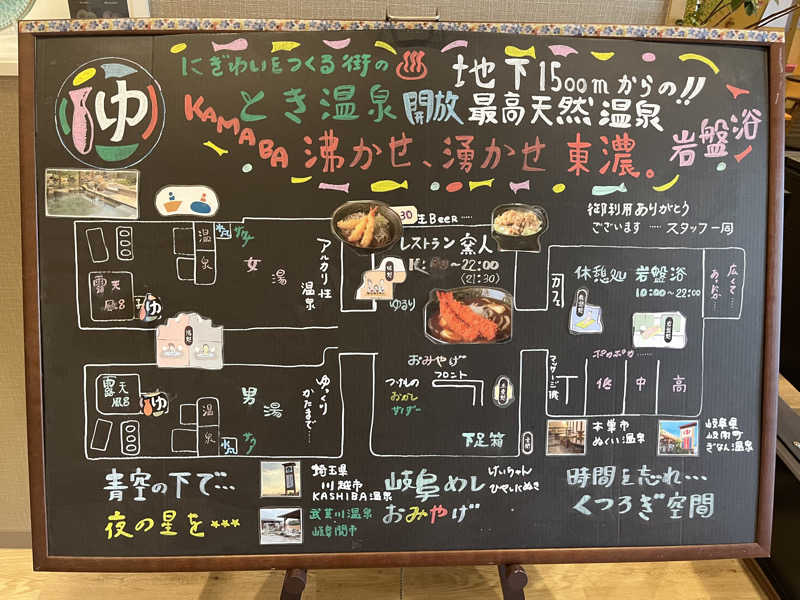 ゆ
にぎわいをつくる街の♨
地下1500mからの!!
とき温泉 開放 最高天然温泉
KAMABA 沸かせ、湧かせ 東濃。 岩盤浴
御利用ありがとう
ございます……スタッフ一同
生Beer……
レストラン 窯人
〜22:00
(21:30)
ゆるり
カフェ
休憩処
岩盤浴
10:00〜22:00
広くて…
あったか…
ポカポカ……
低
中
高
マッサージ機
温泉
水風呂
サウナ
女湯
アルカリ性
温泉
露天風呂
ゆ
露天風呂
ゆ
男湯
ゆっくり
かたまで…
温泉
サウナ
おみやげ
フロント
おかし
サイダー
下足箱
青空の下で…
夜の星を★★★
埼玉県
川越市
KASHIBA温泉
武芸川温泉
岐阜関市
岐阜めし
おみやげ
けいちゃん
本巣市
ぬくい温泉
岐阜県
岐南町
ぎなん温泉
時間を忘れ…
くつろぎ空間